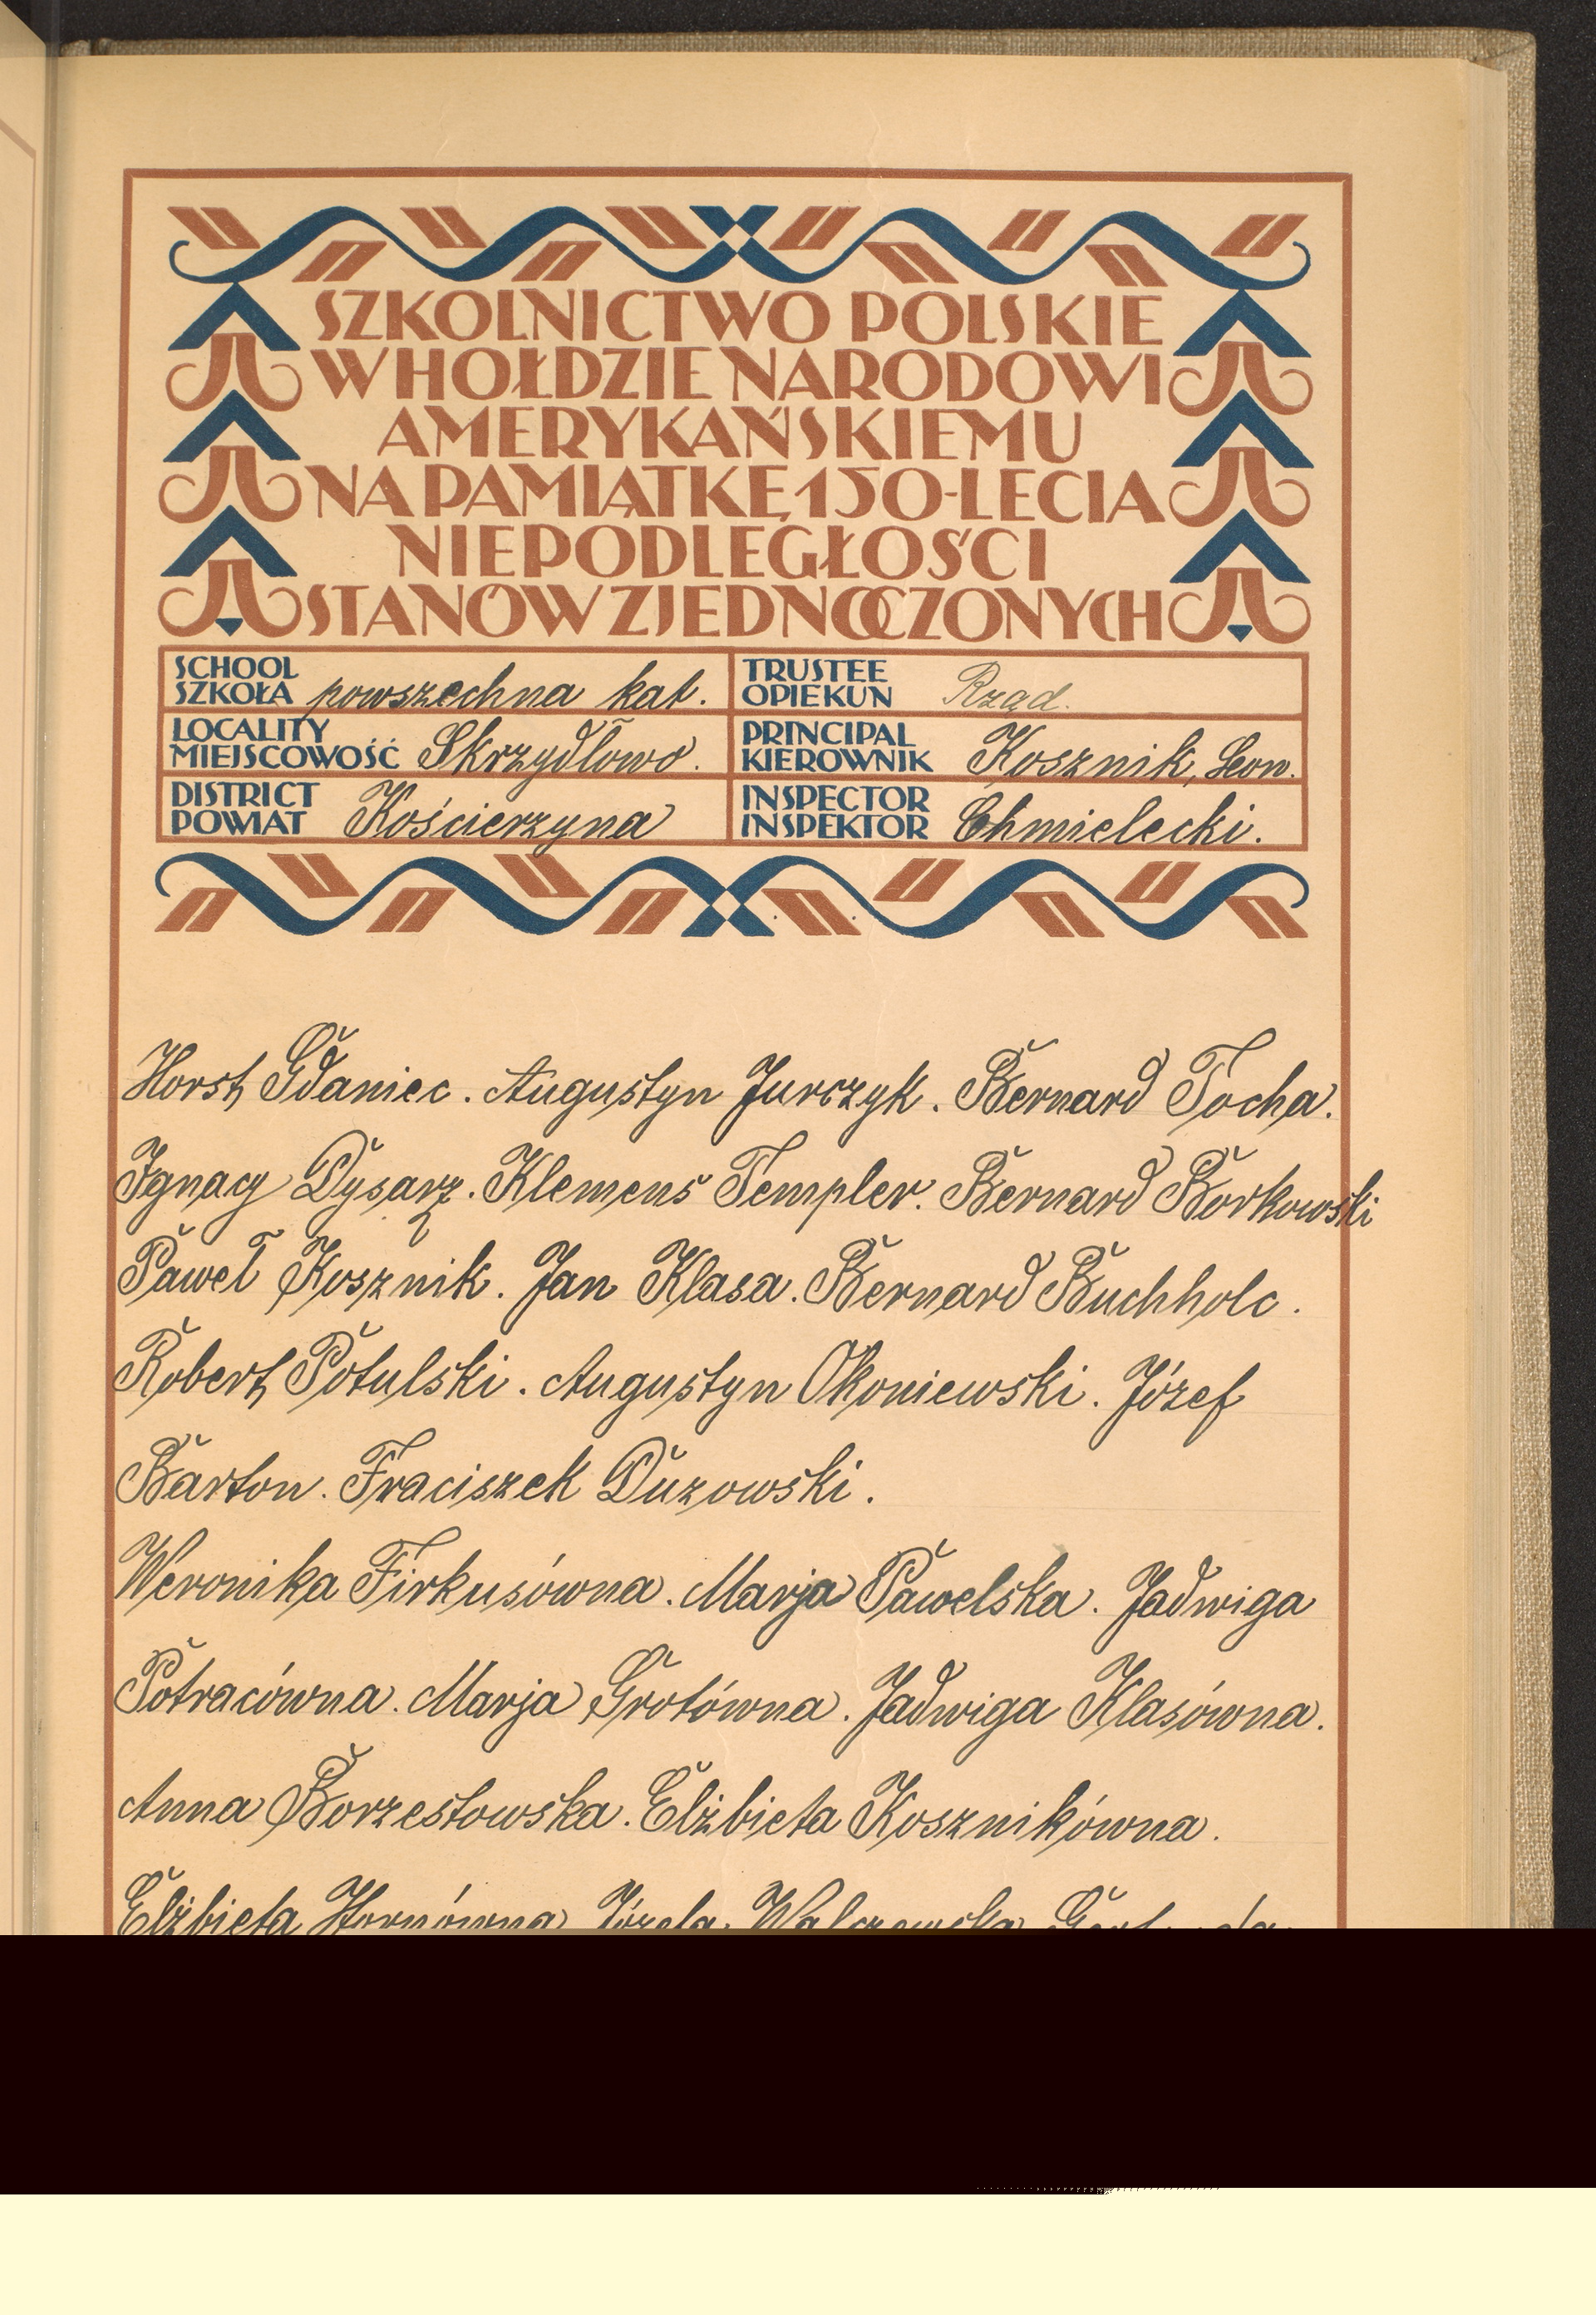 SZKOLNICTWO POLSKIE
W HOŁDZIE NARODOWI
AMERYKAŃSKIEMU
NA PAMIĄTKĘ 150-LECIA
NIEPODLEGŁOŚCI
STANÓW ZJEDNOCZONYCH
SCHOOL
SZKOŁA powszechna kat.
TRUSTEE
OPIEKUN Rząd.
LOCALITY
MIEJSCOWOŚĆ Skrzydłowo.
PRINCIPAL
KIEROWNIK Kosznik, Leon.
DISTRICT
POWIAT Kościerzyna
INSPECTOR
INSPEKTOR Chmielecki.
Horst Gdaniec. Augustyn Jurczyk. Bernard Tocha.
Ignacy Dysarz. Klemens Templer. Bernard Borkowski
Paweł Kosznik. Jan Klasa. Bernard Buchholc.
Robert Potulski. Augustyn Okoniewski. Józef
Barton. Fraciszek Duzowski.
Weronika Firkusówna. Marja Pawelska. Jadwiga
Potracówna. Marja Grotówna. Jadwiga Klasówna.
Anna Borzestowska. Elżbieta Kosznikówna.
Elżbieta